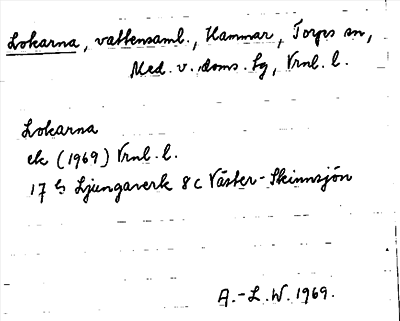 Lokarna, vattensaml., Hammar, Torps sn,
Med. v. doms. hg, Vrnl. l.
Lokarna
ek (1969) Vrnl. l.
17 h Ljungaverk 8c Väster-Skinnsjön
A.-L. W. 1969.